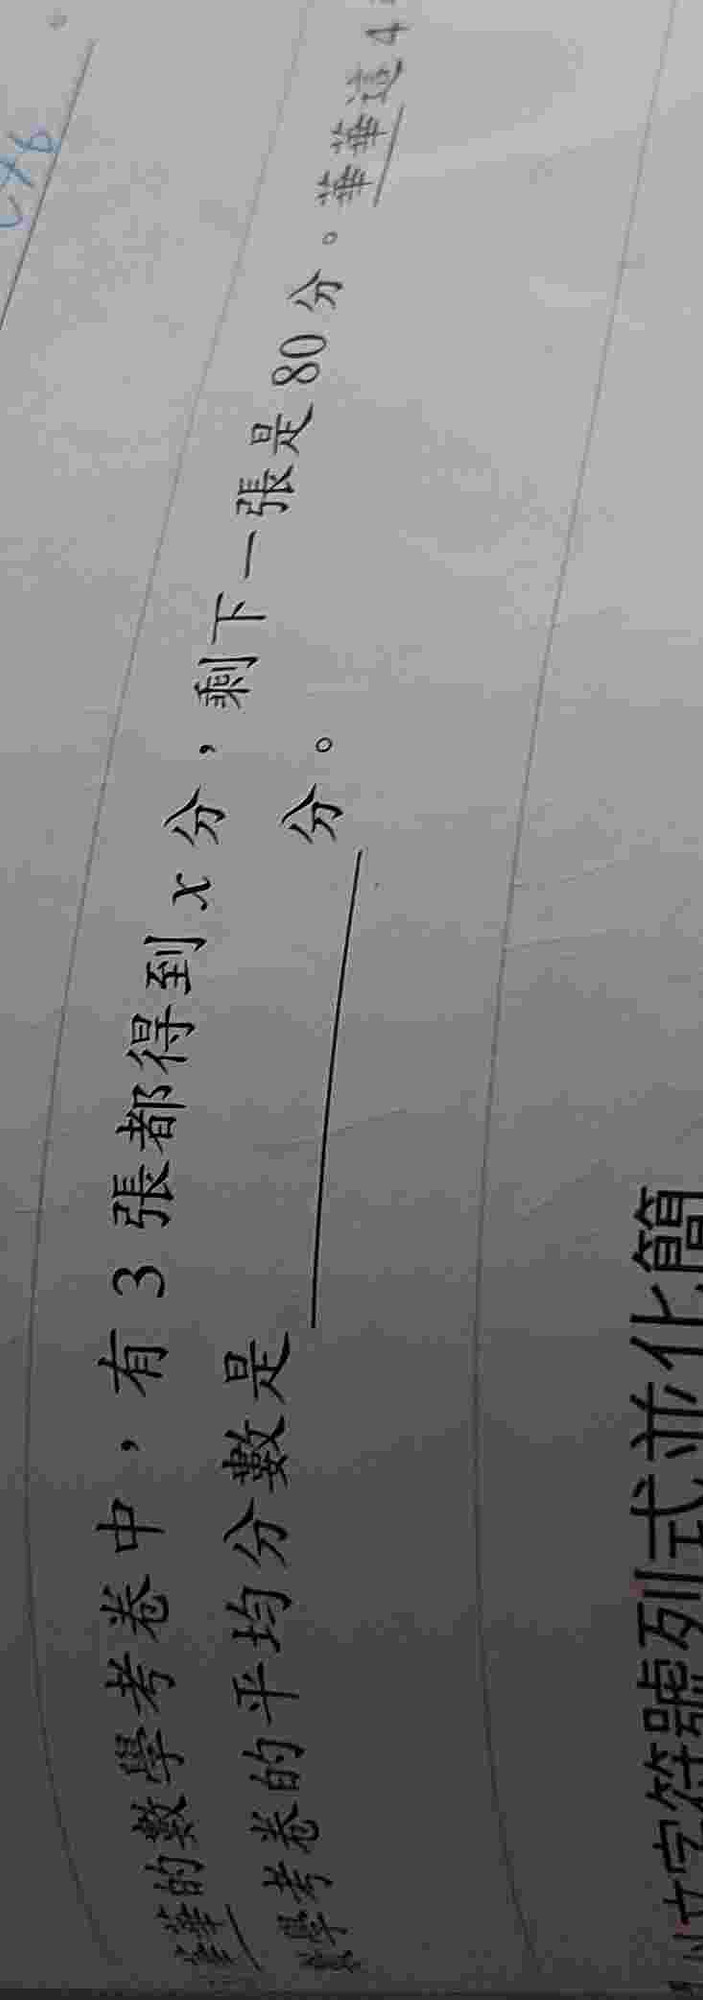 華華的數學考卷中，有3張都得到x分，剩下一張是80分。華華這4
數學考卷的平均分數是＿＿＿＿＿分。
以文字符號列式並化簡